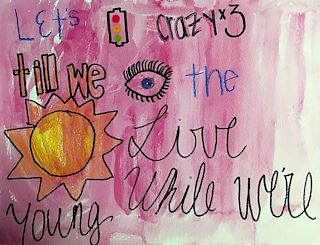 Let's crazy x3
till we the
Live
While we're
young